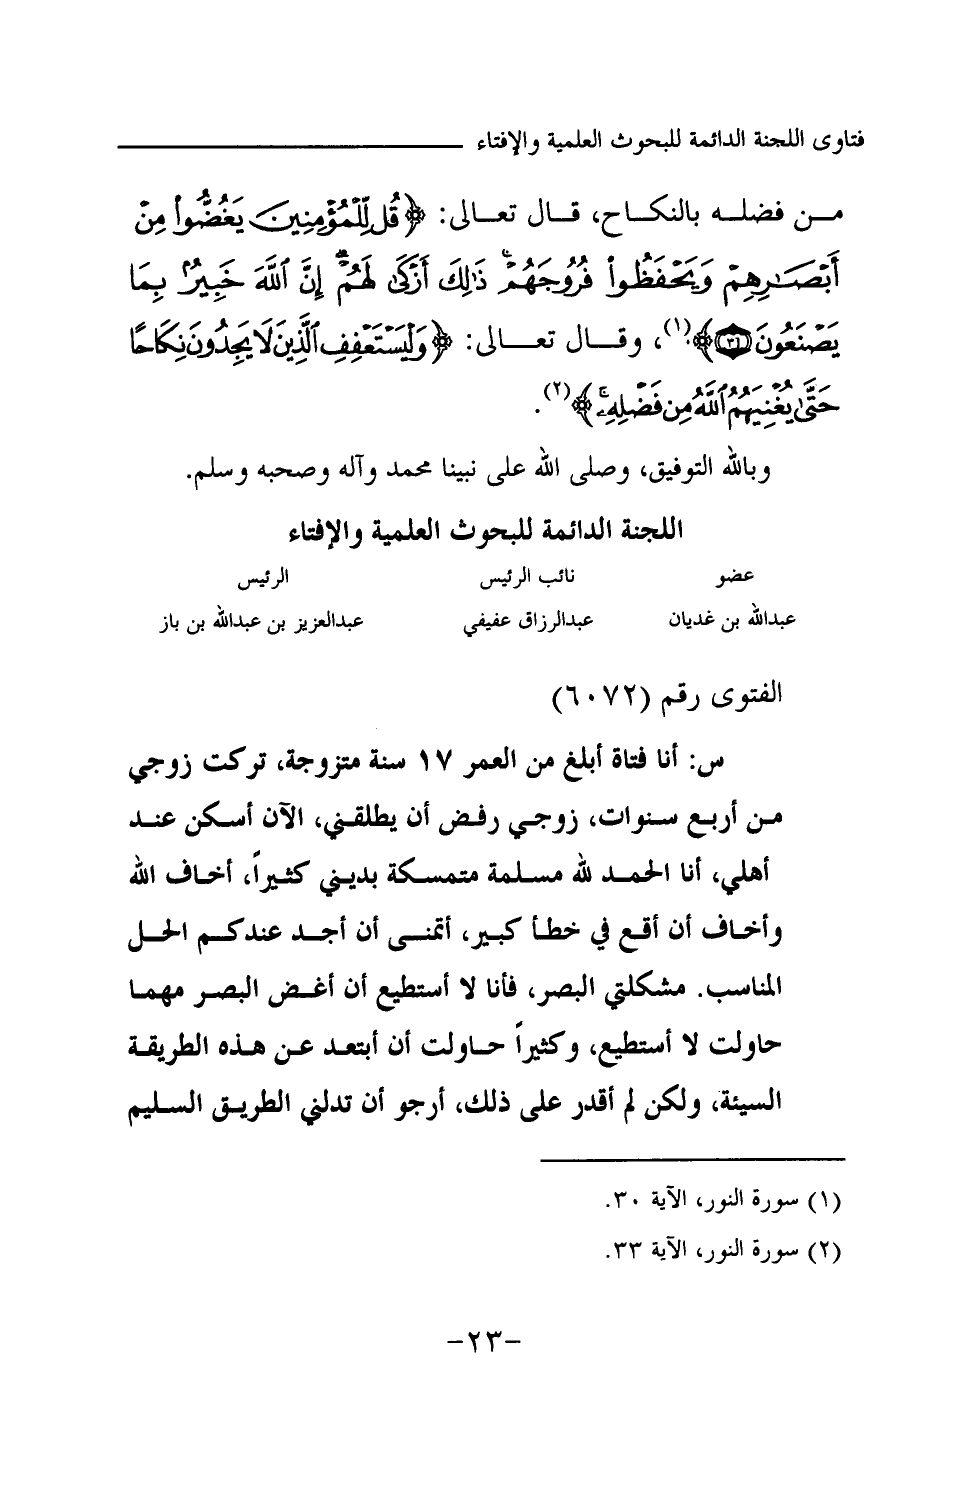 فتاوى اللجنة الدائمة للبحوث العلمية والإفتاء
من فضله بالنكاح، قال تعالى: ﴿قُل لِّلْمُؤْمِنِينَ يَغُضُّوا۟ مِنْ
أَبْصَـٰرِهِمْ وَيَحْفَظُوا۟ فُرُوجَهُمْ ۚ ذَٰلِكَ أَزْكَىٰ لَهُمْ ۗ إِنَّ ٱللَّهَ خَبِيرٌۢ بِمَا
يَصْنَعُونَ ﴿٣٠﴾﴾(١)، وقال تعالى: ﴿وَلْيَسْتَعْفِفِ ٱلَّذِينَ لَا يَجِدُونَ نِكَاحًا
حَتَّىٰ يُغْنِيَهُمُ ٱللَّهُ مِن فَضْلِهِۦ ۗ﴾(٢).
وبالله التوفيق، وصلى الله على نبينا محمد وآله وصحبه وسلم.
اللجنة الدائمة للبحوث العلمية والإفتاء
عضو نائب الرئيس الرئيس
عبدالله بن غديان عبدالرزاق عفيفي عبدالعزيز بن عبدالله بن باز
الفتوى رقم (٦٠٧٢)
س: أنا فتاة أبلغ من العمر ١٧ سنة متزوجة، تركت زوجي
من أربع سنوات، زوجي رفض أن يطلقني، الآن أسكن عند
أهلي، أنا الحمد لله مسلمة متمسكة بديني كثيراً، أخاف الله
وأخاف أن أقع في خطأ كبير، أتمنى أن أجد عندكم الحل
المناسب. مشكلتي البصر، فأنا لا أستطيع أن أغض البصر مهما
حاولت لا أستطيع، وكثيراً حاولت أن أبتعد عن هذه الطريقة
السيئة، ولكن لم أقدر على ذلك، أرجو أن تدلني الطريق السليم
(١) سورة النور، الآية ٣٠.
(٢) سورة النور، الآية ٣٣.
-٢٣-